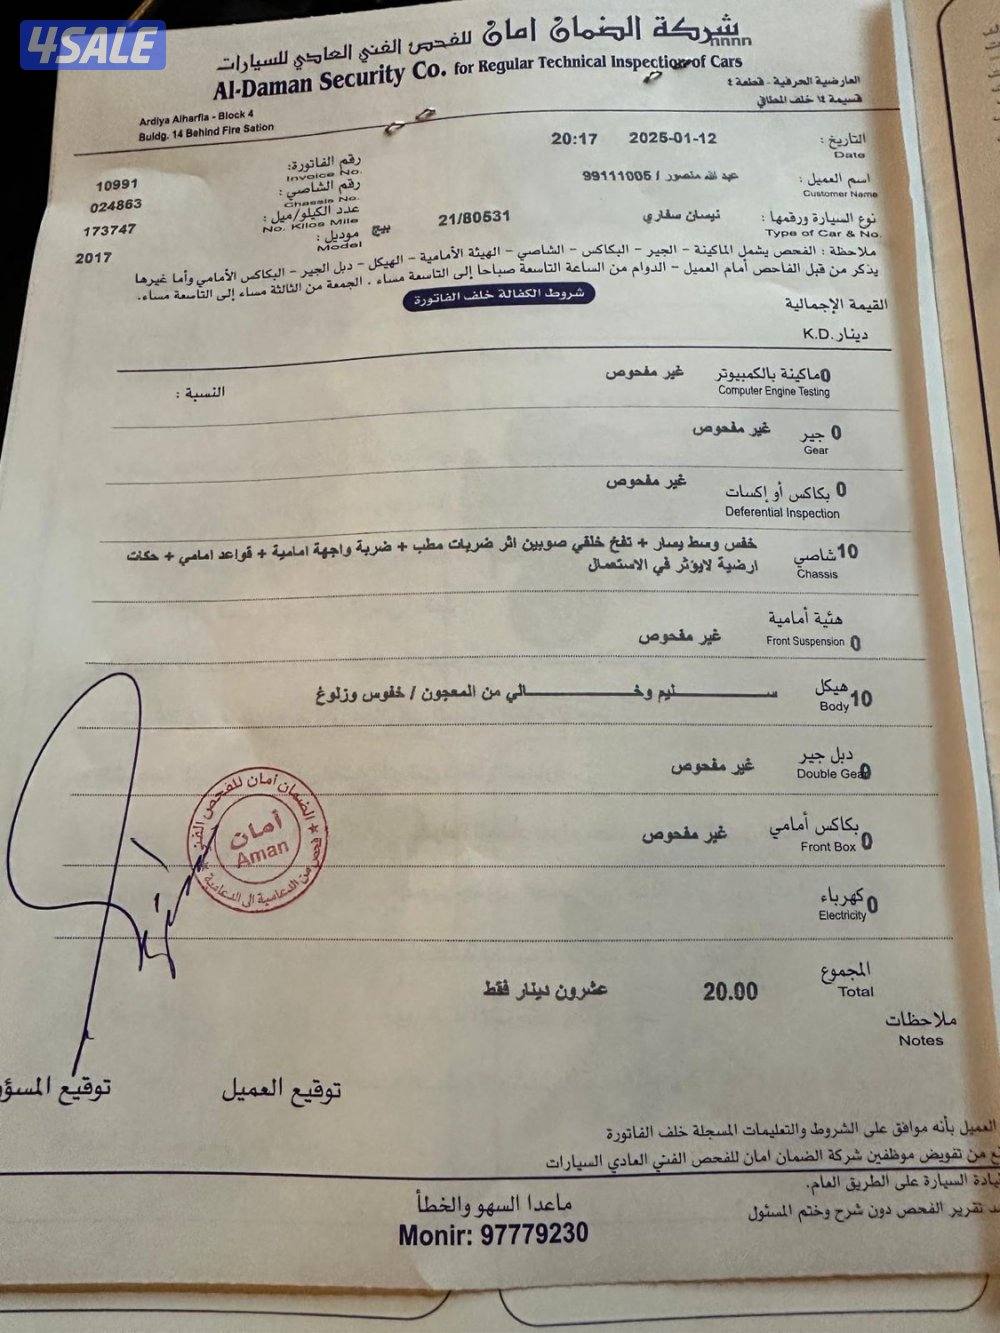 4SALE
شركة الضمان امان للفحص الفني العادي للسيارات
nnnn
Al-Daman Security Co. for Regular Technical Inspection of Cars
العارضية الحرفية - قطعة ٤
قسيمة ١٤ خلف المطافي
Ardiya Alharfia - Block 4
Buldg. 14 Behind Fire Sation
التاريخ : 2025-01-12 20:17
Date
رقم الفاتورة: 10991
Invoice No.
اسم العميل : عبد الله منصور / 99111005
Customer Name
رقم الشاصي : 024863
Chassis No.
نوع السيارة ورقمها : نيسان سفاري 21/80531 بيج
Type of Car & No.
عدد الكيلو/ميل : 173747
No. Kilos Mile
موديل : 2017
Model
ملاحظة : الفحص يشمل الماكينة - الجير - البكاكس - الشاصي - الهيئة الأمامية - الهيكل - دبل الجير - البكاكس الأمامي وأما غيرها
يذكر من قبل الفاحص أمام العميل - الدوام من الساعة التاسعة صباحا إلى التاسعة مساء . الجمعة من الثالثة مساء إلى التاسعة مساء.
شروط الكفالة خلف الفاتورة
القيمة الإجمالية
دينار K.D.
0 ماكينة بالكمبيوتر غير مفحوص
Computer Engine Testing
النسبة :
0 جير غير مفحوص
Gear
0 بكاكس أو إكسات غير مفحوص
Deferential Inspection
10 شاصي خفس وسط يسار + تفخ خلفي صوبين اثر ضربات مطب + ضربة واجهة امامية + قواعد امامي + حكات
ارضية لايؤثر في الاستعمال
Chassis
هيئة أمامية
0 Front Suspension غير مفحوص
10 هيكل سليم وخالي من المعجون / خفوس وزلوغ
Body
دبل جير غير مفحوص
0 Double Gear
بكاكس أمامي غير مفحوص
0 Front Box
0 كهرباء
Electricity
المجموع 20.00 عشرون دينار فقط
Total
ملاحظات
Notes
الضمان أمان للفحص الفني
أمان
Aman
توقيع العميل
توقيع المسؤو
العميل بأنه موافق على الشروط والتعليمات المسجلة خلف الفاتورة
من تفويض موظفين شركة الضمان امان للفحص الفني العادي السيارات
السيارة على الطريق العام.
تقرير الفحص دون شرح وختم المسئول
ماعدا السهو والخطأ
Monir: 97779230